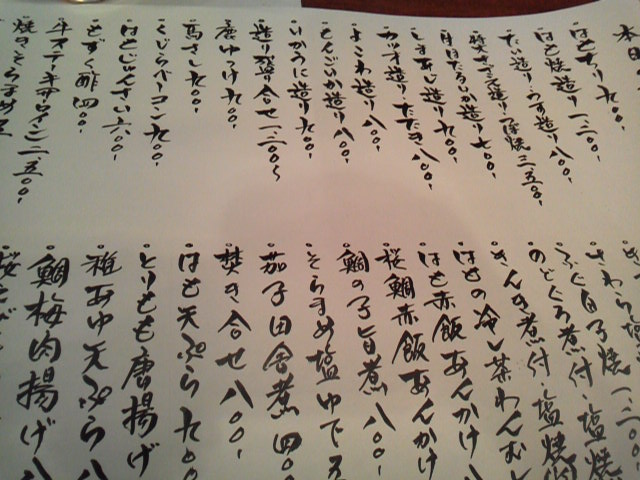 本日
・はもちり九〇〇-
・はも焼造り一、二〇〇-
・たい造り・うす造り八〇〇-
・しまあじ造り九〇〇-
・カツオ造りたたき八〇〇-
・よこわ造り八〇〇-
・もんごいか造り八〇〇-
・いかうに造り九〇〇-
・造り盛り合せ一、二〇〇〜
・鹿ゆっけ九〇〇-
・馬さし九〇〇-
・くじらベーコン九〇〇-
・はもじゅんさい六〇〇-
・もずく酢四〇〇-
・牛ステーキサーロイン二、五〇〇-
・焼きそらまめ
・さわら塩
・ふぐ白子焼一、二〇〇
・のどぐろ煮付・塩焼
・きんき煮付・塩焼
・はもの冷し茶わんむし
・はも赤飯あんかけ
・桜鯛赤飯あんかけ
・鯛の子旨煮八〇〇-
・そらまめ塩ゆで
・茄子田舎煮四〇〇
・焚き合せ八〇〇-
・はも天ぷら九〇〇
・とりもも唐揚げ
・稚あゆ天ぷら八
・鯛梅肉揚げ八